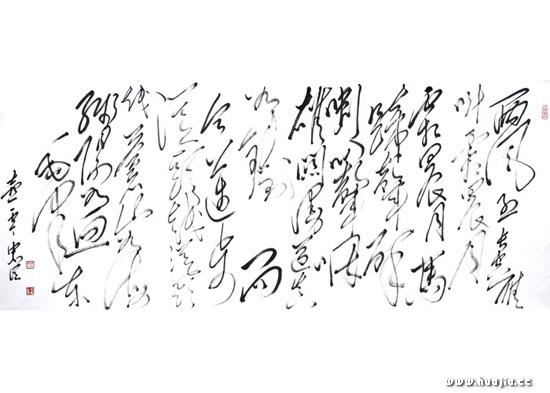 西风烈长空雁
叫霜晨月
霜晨月马
蹄声碎
喇叭声咽
雄关漫道真
如铁而
今迈步
从头越从头
越苍山如海
残阳如血
www.huajia.cc